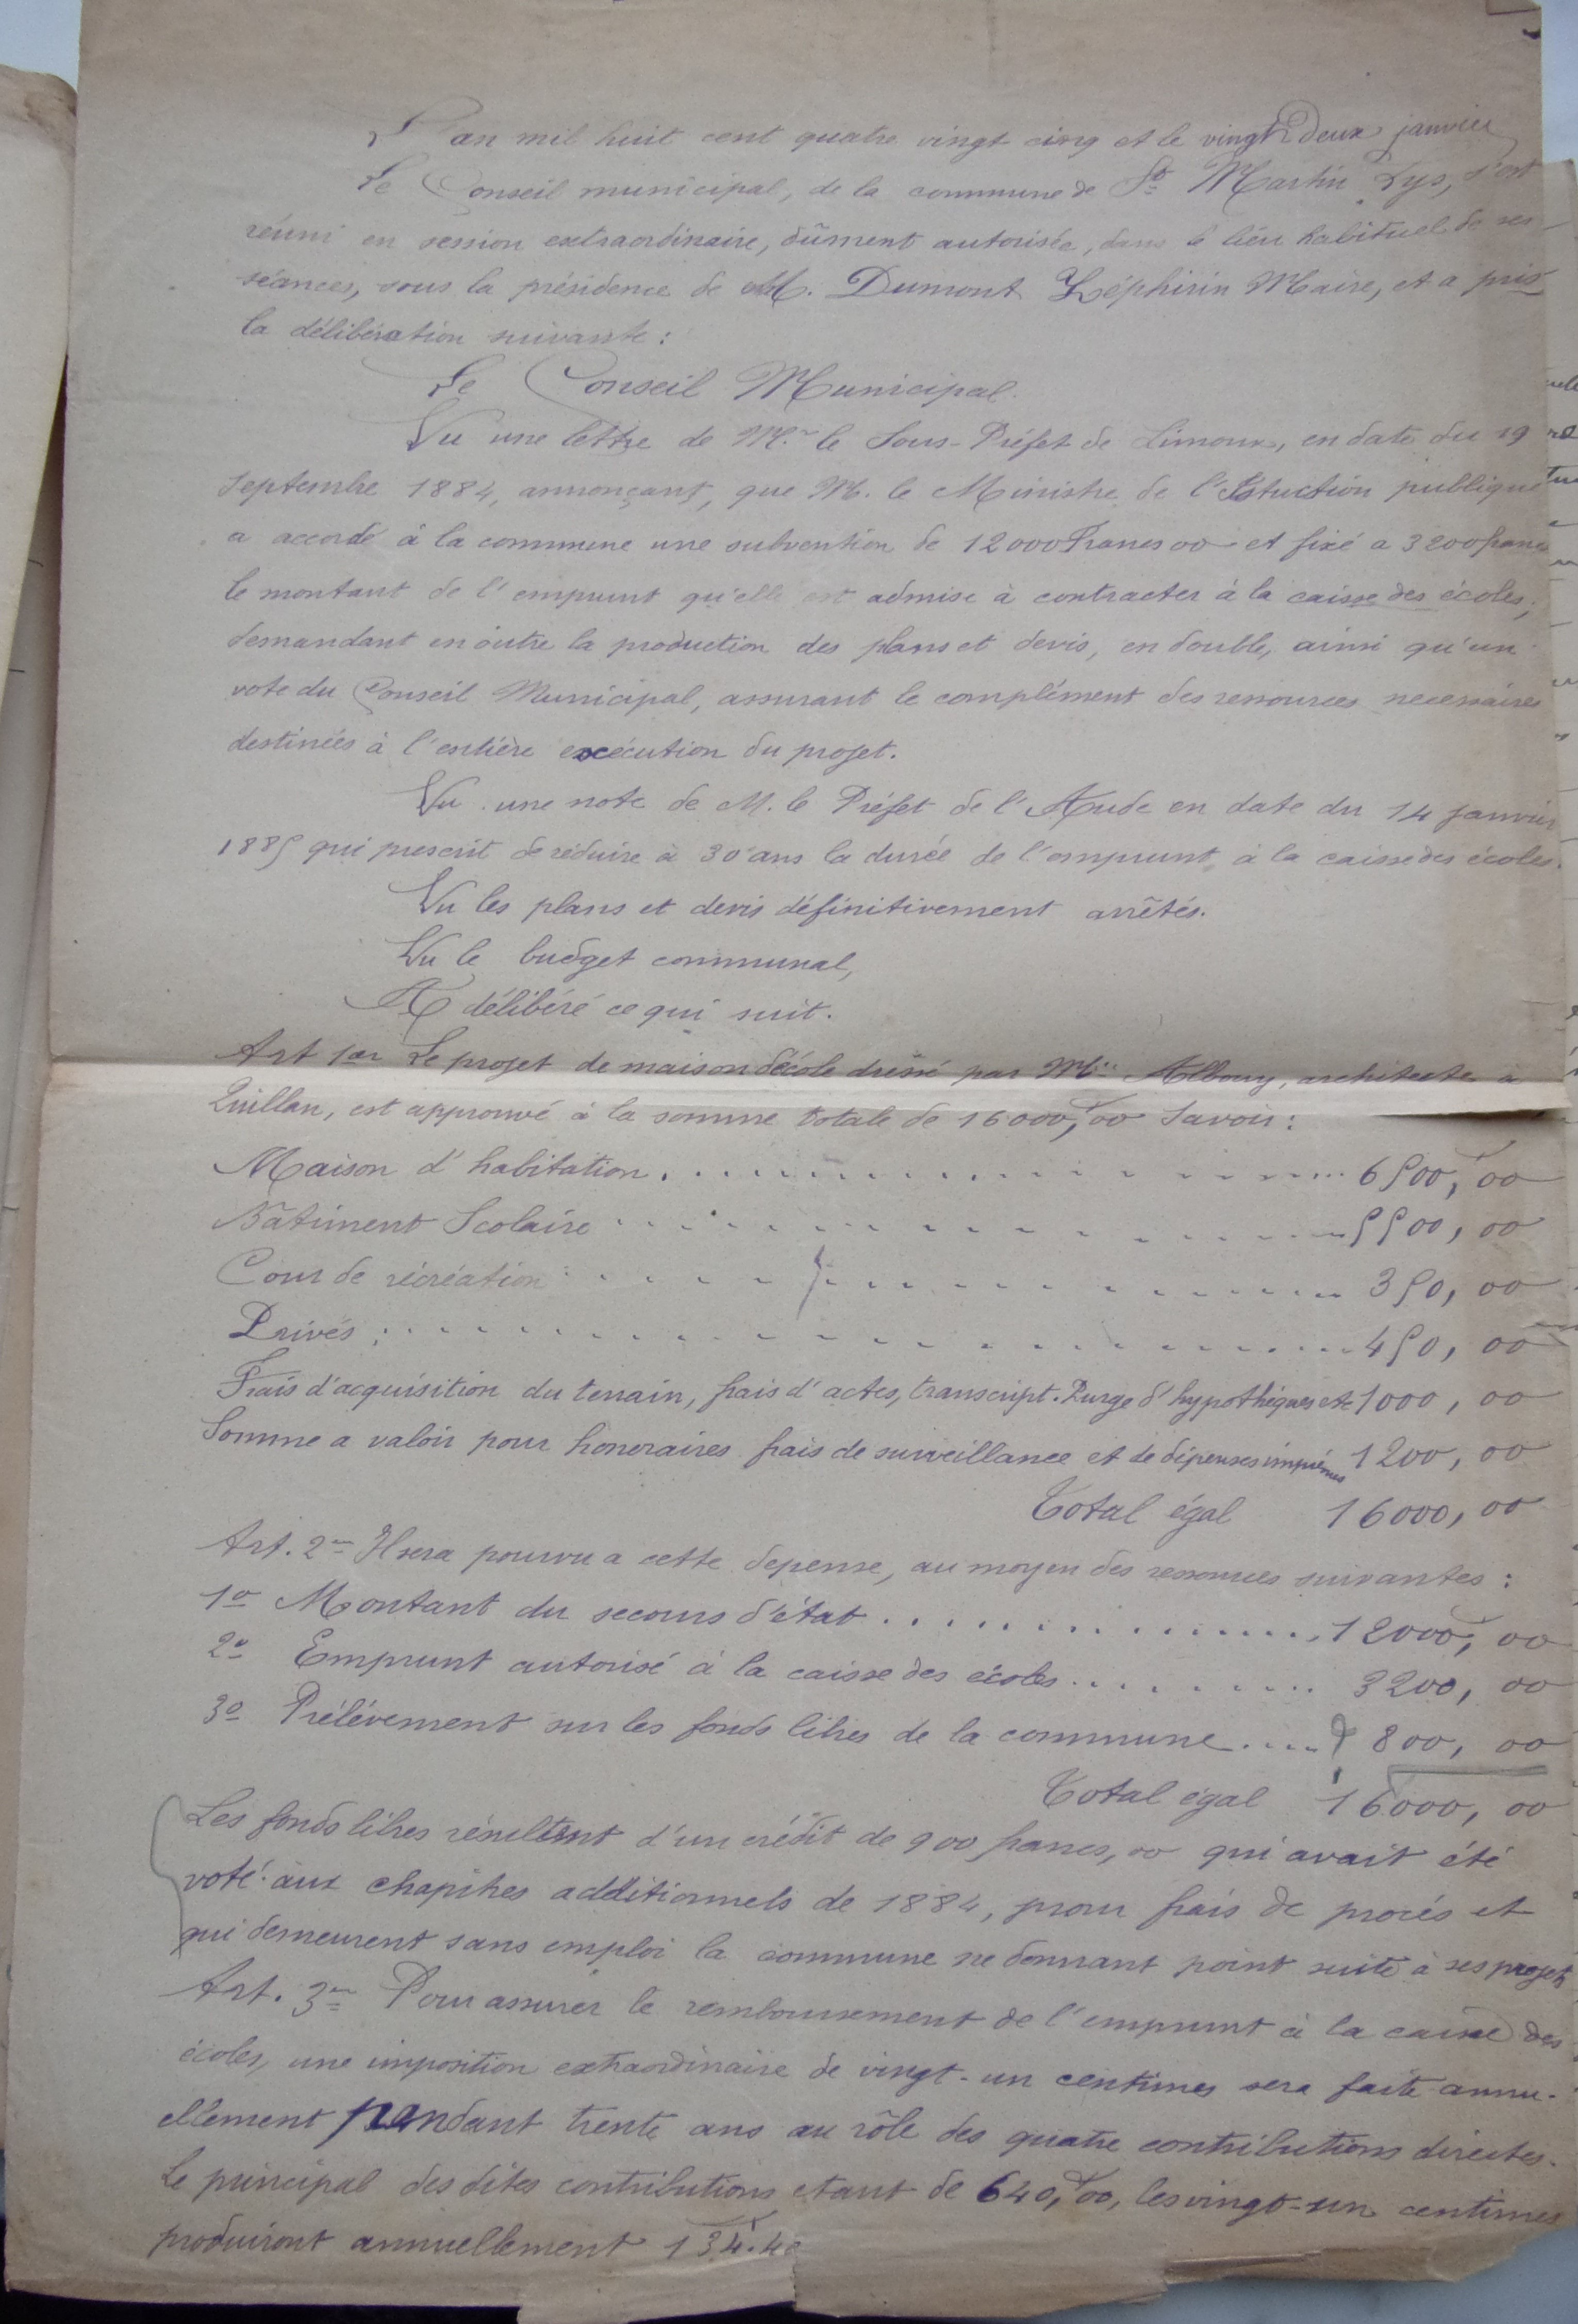 L'an mil huit cent quatre vingt cinq et le vingt deux janvier
Le Conseil municipal, de la commune de St Martin Lys, s'est
réuni en session extraordinaire, dûment autorisée, dans le lieu habituel de ses
séances, sous la présidence de M. Dumont Zéphirin Maire, et a pris
la délibération suivante :
Le Conseil Municipal.
Vu une lettre de Mr le Sous-Préfet de Limoux, en date du 19
Septembre 1884, annonçant, que M. le Ministre de l'Istuction publique
a accordé à la commune une subvention de 12000 Francs 00 et fixé a 3200 francs
le montant de l'emprunt qu'elle est admise à contracter à la caisse des écoles,
demandant en outre la production des plans et devis, en double, ainsi qu'un
vote du Conseil Municipal, assurant le complément des ressources necessaires
destinées à l'entière exécution du projet.
Vu une note de M. le Préfet de l'Aude en date du 14 janvier
1885 qui prescrit de réduire à 30 ans la durée de l'emprunt à la caisse des écoles.
Vu les plans et devis définitivement arrêtés.
Vu le budget communal,
A délibéré ce qui suit.
Art 1er Le projet de maison d'école dressé par Mr Alboury, architecte à
Quillan, est approuvé à la somme totale de 16000,f00 Savoir :
Maison d'habitation . . . . . . . . . . 6500,f00
Bâtiment Scolaire . . . . . . . . . . 5500,00
Cour de récréation . . . . . . . . . . 350,00
Privés . . . . . . . . . . 450,00
Frais d'acquisition du terrain, frais d'actes, transcript. Purge d'hypothèques etc 1000,00
Somme a valoir pour honoraires frais de surveillance et de dépenses imprévues 1200,00
Total égal 16000,00
Art. 2me Il sera pourvu a cette depense, au moyen des ressources suivantes :
1o Montant du secours d'état . . . . . . . . . . 12000,f00
2o Emprunt autorisé à la caisse des écoles . . . . . . . . 3200,00
3o Prélévement sur les fonds libres de la commune . . . . 800,00
Total égal 16000,00
Les fonds libres résultent d'un crédit de 900 francs,00 qui avait été
voté aux chapitres additionnels de 1884, pour frais de procés et
qui demeurent sans emploi la commune ne donnant point suite à ses projets
Art. 3me Pour assurer le remboursement de l'emprunt à la caisse des
écoles, une imposition extraordinaire de vingt-un centimes sera faite annu-
ellement pendant trente ans au rôle des quatre contributions directes.
Le principal des dites contributions etant de 640,f00, les vingt-un centimes
produiront annuellement 134f.40